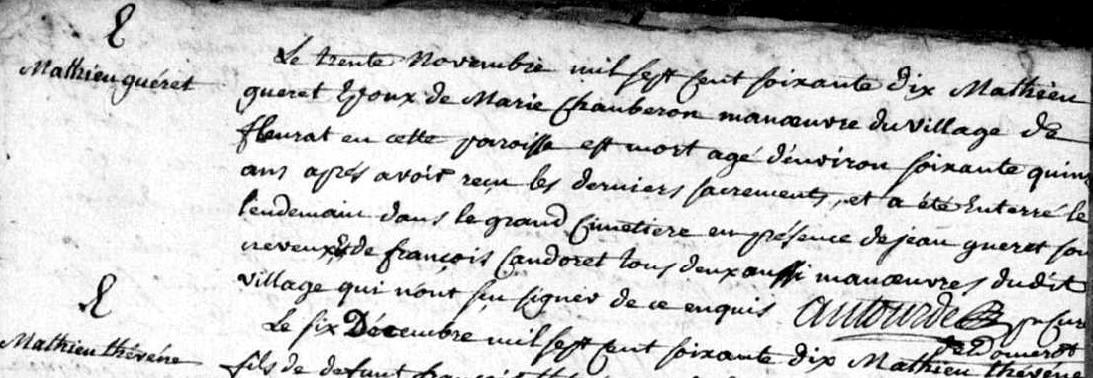 E
Mathieu guéret
Le trente Novembre mil sept cent soixante dix Mathieu
gueret Epoux de Marie Chauberon manœuvre du village de
fleurat en cette parroisse est mort agé d'environ soixante quin
ans aprés avoir reçu les derniers sacrements, et a été Enterré le
lendemain dans le grand Cimetiere en présence de jean gueret son
neveux, & de françois Candoret tous deux aussi manœuvres dudit
village qui n'ont sçu signer de ce enquis autourde pr Cur
de Domerot
E
Mathieu thévéne
Le six Décembre mil sept cent soixante dix Mathieu thévéne
fils de defunt françois